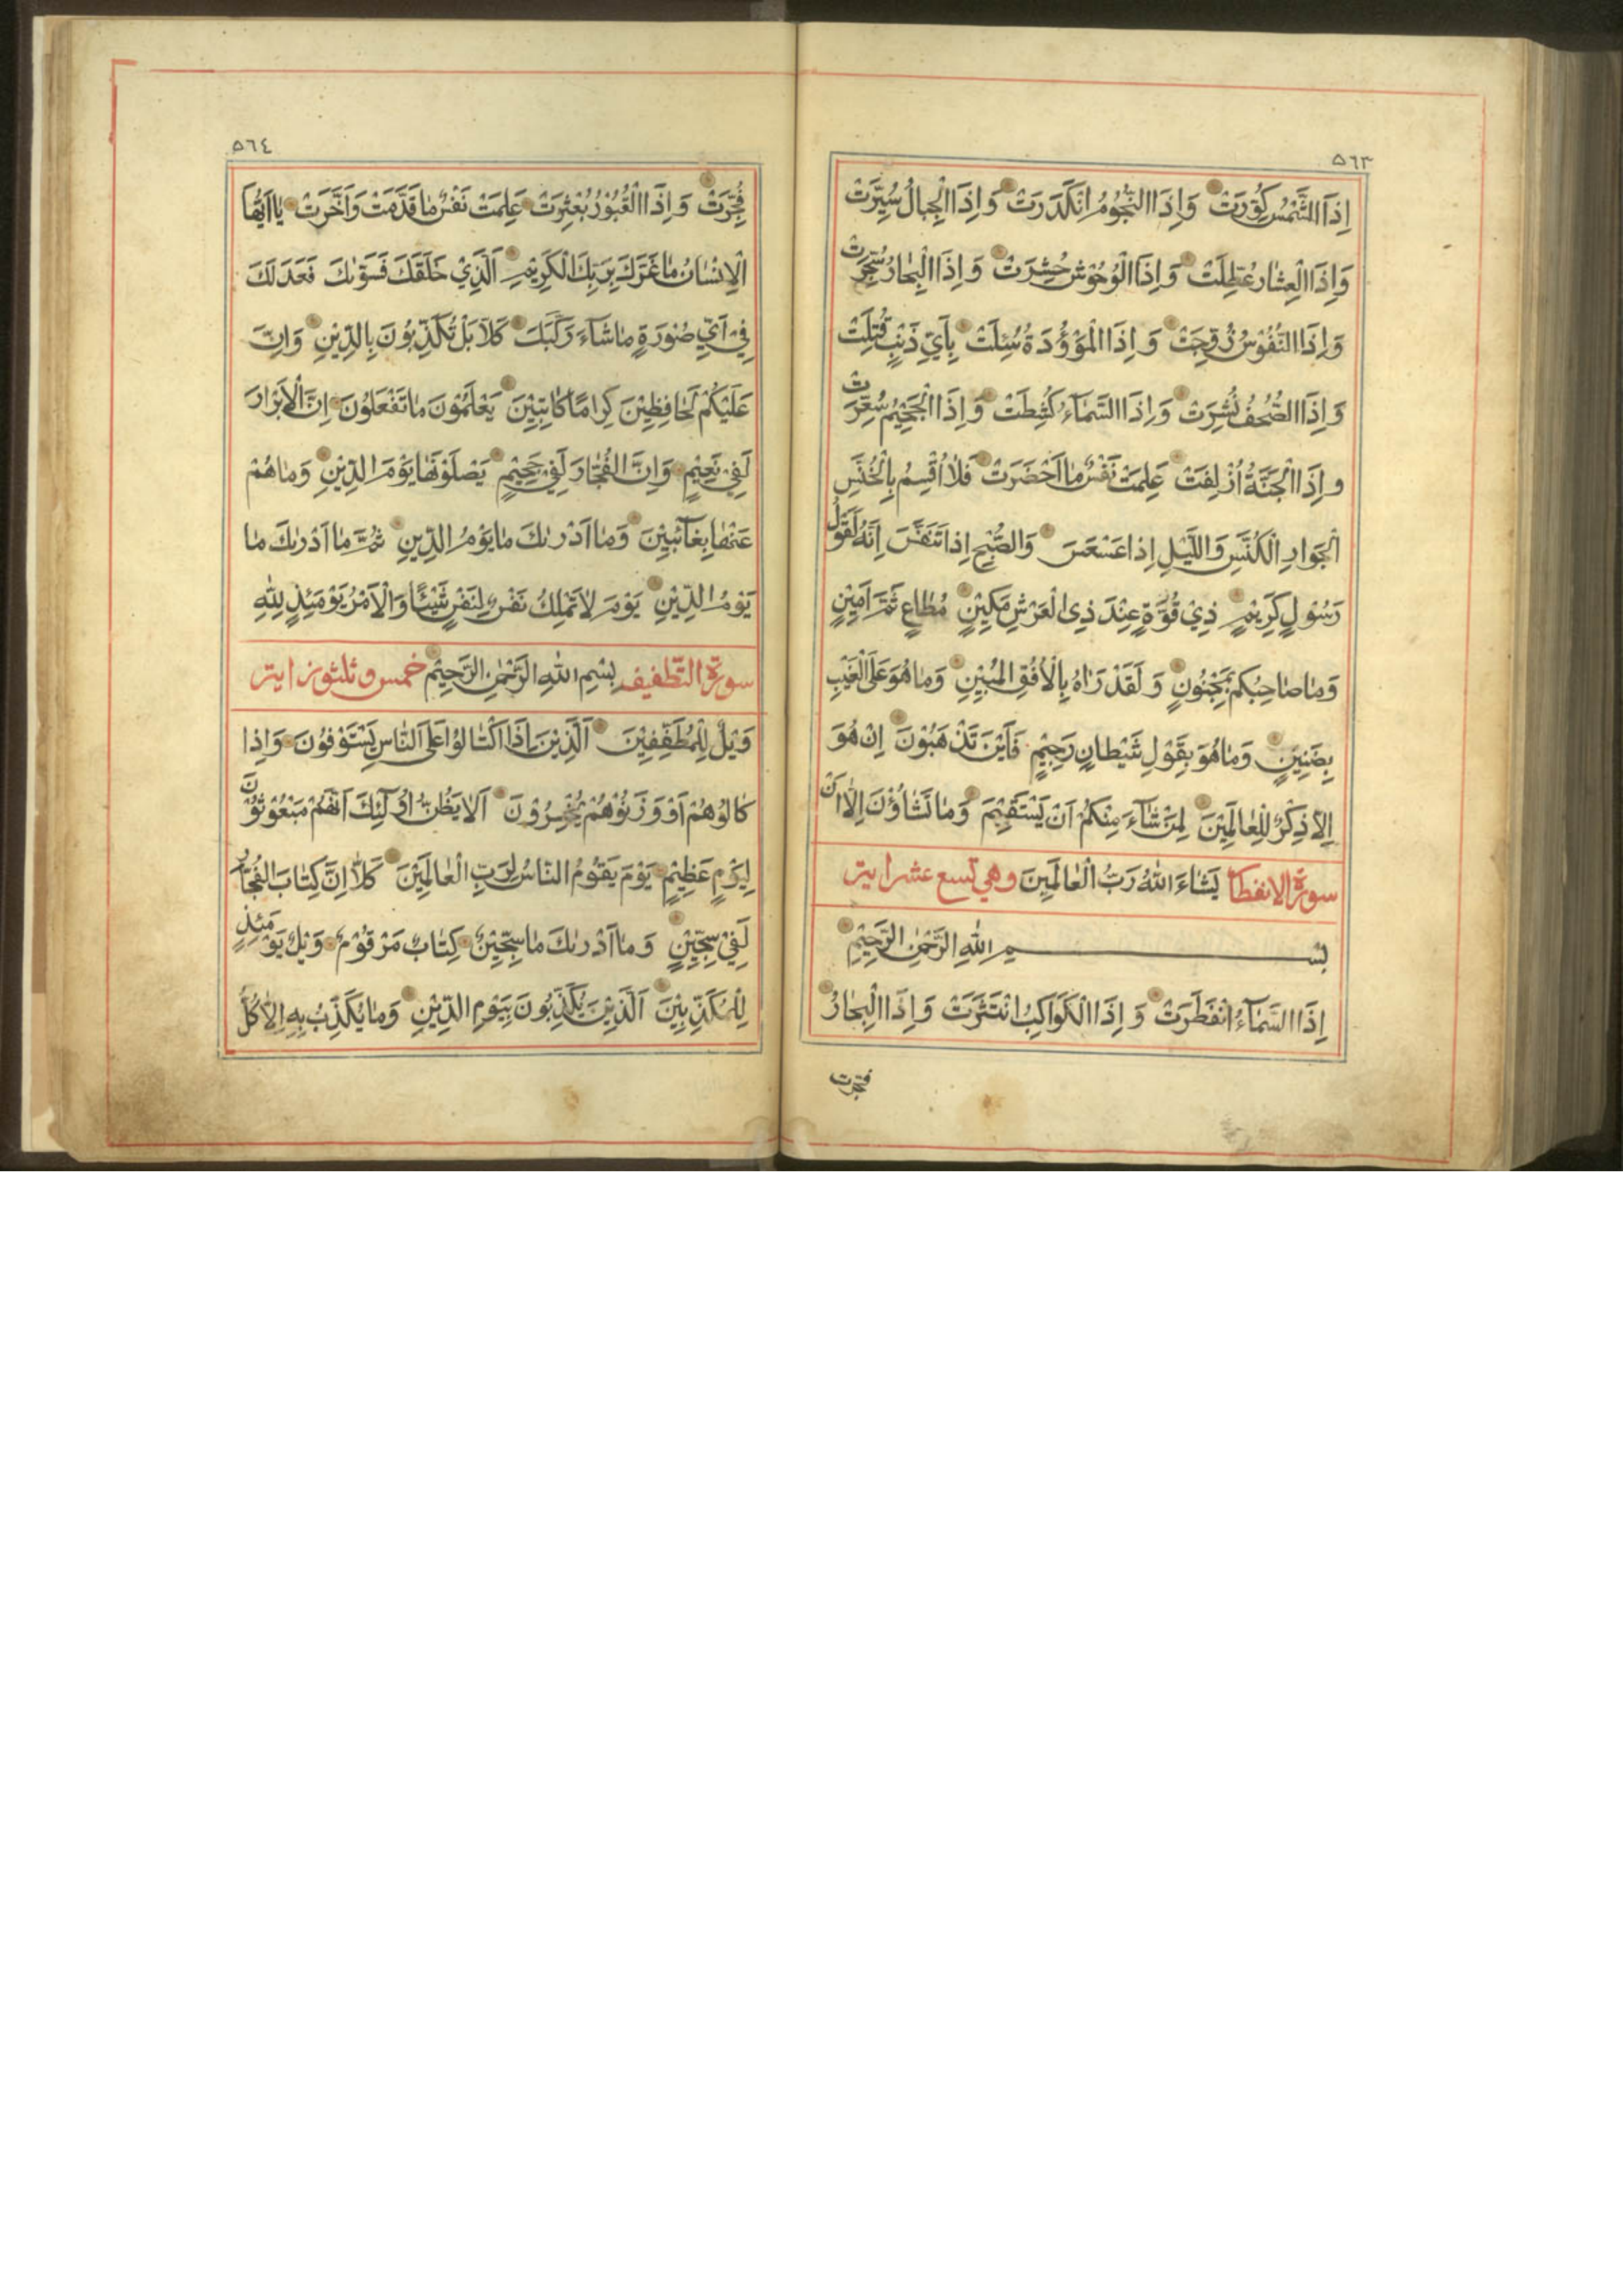 ٥٦٣
اِذَا الشَّمْسُ كُوِّرَتْ وَاِذَا النُّجُومُ انْكَدَرَتْ وَاِذَا الْجِبَالُ سُيِّرَتْ
وَاِذَا الْعِشَارُ عُطِّلَتْ وَاِذَا الْوُحُوْشُ حُشِرَتْ وَاِذَا الْبِحَارُ سُجِّرَتْ
وَاِذَا النُّفُوْسُ زُوِّجَتْ وَاِذَا الْمَوْؤُدَةُ سُئِلَتْ بِاَيِّ ذَنْبٍ قُتِلَتْ
وَاِذَا الصُّحُفُ نُشِرَتْ وَاِذَا السَّمَاءُ كُشِطَتْ وَاِذَا الْجَحِيْمُ سُعِّرَتْ
وَاِذَا الْجَنَّةُ اُزْلِفَتْ عَلِمَتْ نَفْسٌ مَا اَحْضَرَتْ فَلَا اُقْسِمُ بِالْخُنَّسِ
الْجَوَارِ الْكُنَّسِ وَاللَّيْلِ اِذَا عَسْعَسَ وَالصُّبْحِ اِذَا تَنَفَّسَ اِنَّهُ لَقَوْلُ
رَسُولٍ كَرِيْمٍ ذِيْ قُوَّةٍ عِنْدَ ذِي الْعَرْشِ مَكِيْنٍ مُطَاعٍ ثَمَّ اَمِيْنٍ
وَمَا صَاحِبُكُمْ بِمَجْنُونٍ وَلَقَدْ رَاٰهُ بِالْاُفُقِ الْمُبِيْنِ وَمَا هُوَ عَلَى الْغَيْبِ
بِضَنِيْنٍ وَمَا هُوَ بِقَوْلِ شَيْطَانٍ رَجِيْمٍ فَاَيْنَ تَذْهَبُوْنَ اِنْ هُوَ
اِلَّا ذِكْرٌ لِلْعَالَمِيْنَ لِمَنْ شَاءَ مِنْكُمْ اَنْ يَسْتَقِيْمَ وَمَا تَشَاؤُنَ اِلَّا اَنْ
سورة الانفطار يَشَاءَ اللّٰهُ رَبُّ الْعَالَمِيْنَ وهي تسع عشر ايتر
بِسْمِ اللّٰهِ الرَّحْمٰنِ الرَّحِيْمِ
اِذَا السَّمَآءُ انْفَطَرَتْ وَاِذَا الْكَوَاكِبُ انْتَثَرَتْ وَاِذَا الْبِحَارُ
فجرت
٥٦٤
فُجِّرَتْ وَاِذَا الْقُبُوْرُ بُعْثِرَتْ عَلِمَتْ نَفْسٌ مَا قَدَّمَتْ وَاَخَّرَتْ يَا اَيُّهَا
الْاِنْسَانُ مَا غَرَّكَ بِرَبِّكَ الْكَرِيْمِ اَلَّذِيْ خَلَقَكَ فَسَوّٰىكَ فَعَدَلَكَ
فِيْ اَيِّ صُوْرَةٍ مَا شَآءَ رَكَّبَكَ كَلَّا بَلْ تُكَذِّبُوْنَ بِالدِّيْنِ وَاِنَّ
عَلَيْكُمْ لَحَافِظِيْنَ كِرَامًا كَاتِبِيْنَ يَعْلَمُوْنَ مَا تَفْعَلُوْنَ اِنَّ الْاَبْرَارَ
لَفِيْ نَعِيْمٍ وَاِنَّ الْفُجَّارَ لَفِيْ جَحِيْمٍ يَصْلَوْنَهَا يَوْمَ الدِّيْنِ وَمَا هُمْ
عَنْهَا بِغَآئِبِيْنَ وَمَا اَدْرٰىكَ مَا يَوْمُ الدِّيْنِ ثُمَّ مَا اَدْرٰىكَ مَا
يَوْمُ الدِّيْنِ يَوْمَ لَا تَمْلِكُ نَفْسٌ لِنَفْسٍ شَيْئًا وَالْاَمْرُ يَوْمَئِذٍ لِلّٰهِ
سورة التطفيف بِسْمِ اللّٰهِ الرَّحْمٰنِ الرَّحِيْمِ خمس وثلثون ايتر
وَيْلٌ لِلْمُطَفِّفِيْنَ اَلَّذِيْنَ اِذَا اكْتَالُوْا عَلَى النَّاسِ يَسْتَوْفُوْنَ وَاِذَا
كَالُوْهُمْ اَوْ وَزَنُوْهُمْ يُخْسِرُوْنَ اَلَا يَظُنُّ اُولٰٓئِكَ اَنَّهُمْ مَبْعُوْثُوْنَ
لِيَوْمٍ عَظِيْمٍ يَوْمَ يَقُوْمُ النَّاسُ لِرَبِّ الْعَالَمِيْنَ كَلَّا اِنَّ كِتَابَ الْفُجَّارِ
لَفِيْ سِجِّيْنٍ وَمَا اَدْرٰىكَ مَا سِجِّيْنٌ كِتَابٌ مَرْقُوْمٌ وَيْلٌ يَوْمَئِذٍ
لِلْمُكَذِّبِيْنَ اَلَّذِيْنَ يُكَذِّبُوْنَ بِيَوْمِ الدِّيْنِ وَمَا يُكَذِّبُ بِهِ اِلَّا كُلُّ